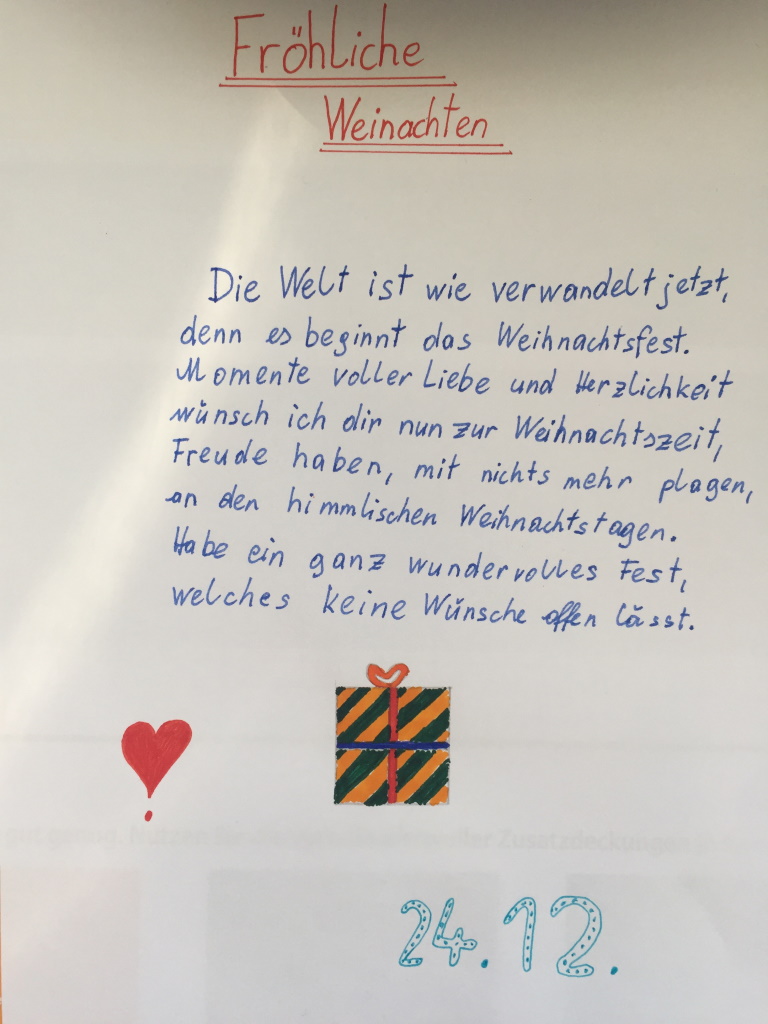 Fröhliche
Weinachten
Die Welt ist wie verwandelt jetzt,
denn es beginnt das Weihnachtsfest.
Momente voller Liebe und Herzlichkeit
wünsch ich dir nun zur Weihnachtszeit,
Freude haben, mit nichts mehr plagen,
an den himmlischen Weihnachtstagen.
Habe ein ganz wundervolles Fest,
welches keine Wünsche offen lässt.
Zusatzdeckungen
24.12.